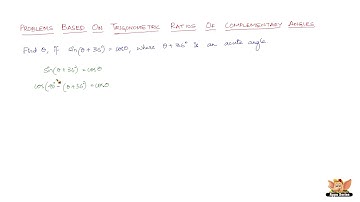 PROBLEMS BASED ON TRIGONOMETRIC RATIOS OF COMPLEMENTARY ANGLES
Find θ, if sin(θ+36°) = cosθ, where θ+36° is an acute angle
sin(θ+36°) = cosθ
cos(90° - (θ+36°)) = cosθ